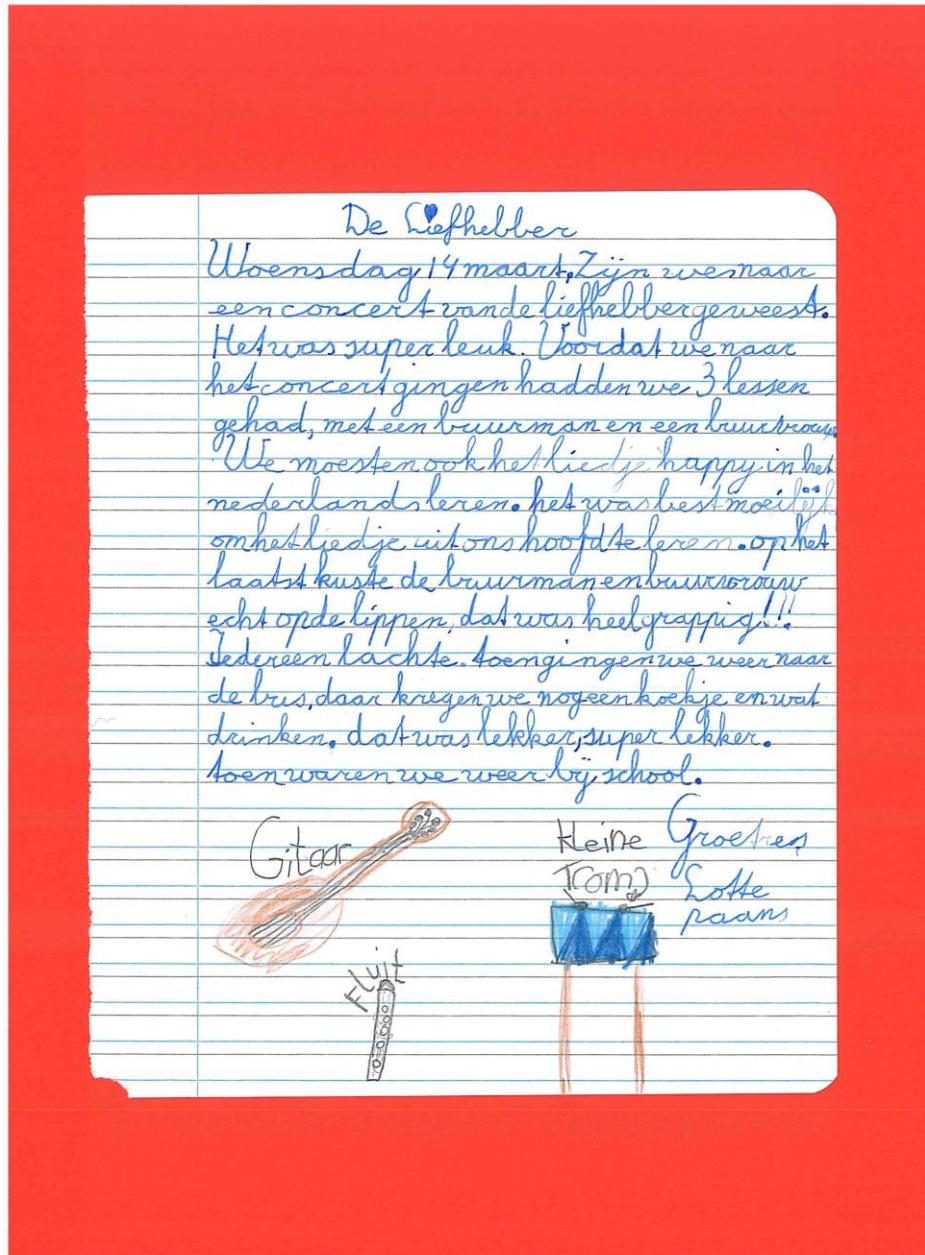 De Liefhebber
Woensdag 14 maart, Zijn we naar
een concert van de liefhebber geweest.
Het was super leuk. Voordat we naar
het concert gingen hadden we 3 lessen
gehad, met een buurman en een buurvrouw.
We moesten ook het liedje happy in het
nederlands leren. het was best moeilijk
om het liedje uit ons hoofd te leren. op het
laatst kuste de buurman en buurvrouw
echt op de lippen, dat was heel grappig!!!
Iedereen lachte. toen gingen we weer naar
de bus, daar kregen we nog een koekje en wat
drinken. dat was lekker, super lekker.
toen waren we weer bij school.
Gitaar
Kleine
Trom
Groetjes
Lotte
paans
Fluit